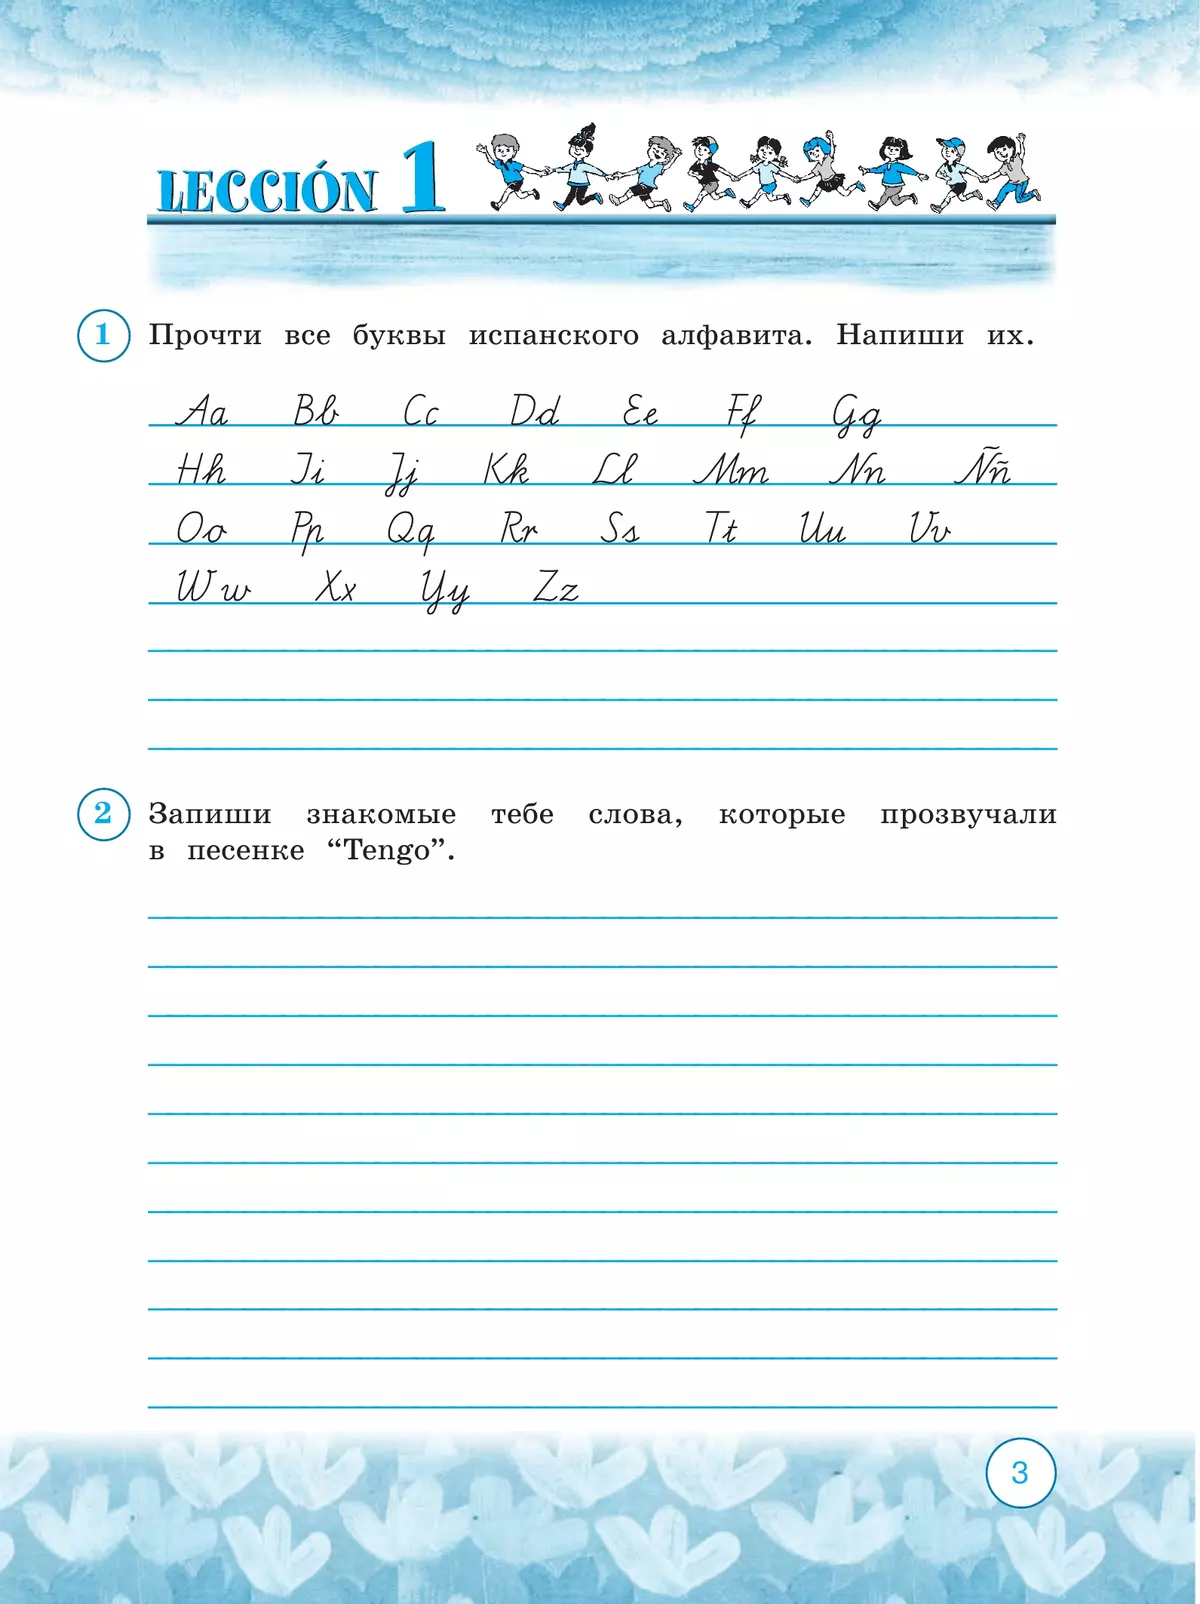 LECCIÓN 1
1 Прочти все буквы испанского алфавита. Напиши их.
Aa Bb Cc Dd Ee Ff Gg
Hh Ii Jj Kk Ll Mm Nn Ññ
Oo Pp Qq Rr Ss Tt Uu Vv
Ww Xx Yy Zz
2 Запиши знакомые тебе слова, которые прозвучали
в песенке “Tengo”.
3